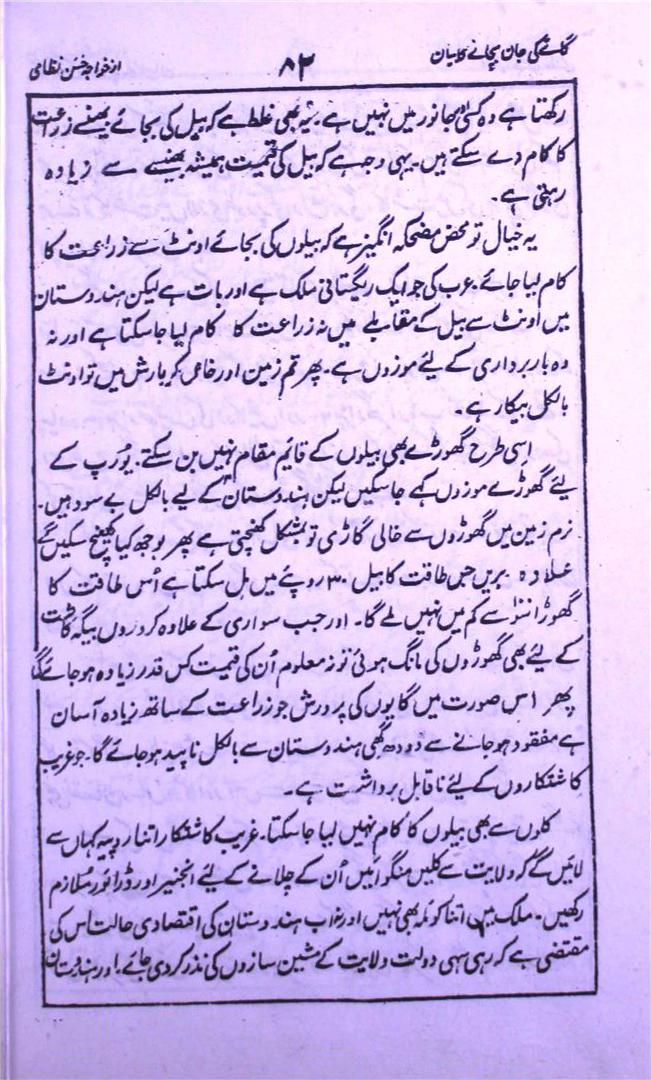 گائے کی جان بچانے کا بیان
۸۲
از خواجہ حسن نظامی
رکھتا ہے وہ کسی جانور میں نہیں ہے۔ یہ بھی غلط ہے کہ بیل کی بجائے بھینسے زراعت
کا کام دے سکتے ہیں۔ یہی وجہ ہے کہ بیل کی قیمت ہمیشہ بھینسے سے زیادہ
رہتی ہے۔
یہ خیال تو محض مضحکہ انگیز ہے کہ بیلوں کی بجائے اونٹ سے زراعت کا
کام لیا جائے۔ عرب کی جو ایک ریگستانی ملک ہے اور بات ہے لیکن ہندوستان
میں اونٹ سے بیل کے مقابلے میں نہ زراعت کا کام لیا جا سکتا ہے اور نہ
وہ باربرداری کے لئے موزوں ہے۔ پھر نم زمین اور خاص کر بارش میں تو اونٹ
بالکل بیکار ہے۔
اسی طرح گھوڑے بھی بیلوں کے قایم مقام نہیں بن سکتے۔ یورپ کے
لئے گھوڑے موزوں کہے جا سکیں لیکن ہندوستان کے لیے بالکل بے سود ہیں۔
نرم زمین میں گھوڑوں سے خالی گاڑی تو بمشکل کھنچتی ہے پھر بوجھ کیا کھینچ سکیں گے
علاوہ بریں جس طاقت کا بیل ۳۰ روپئے میں مل سکتا ہے اُس طاقت کا
گھوڑا سے کم میں نہیں ملے گا۔ اور جب سواری کے علاوہ کروروں بیگہ کاشت
کے لئے بھی گھوڑوں کی مانگ ہوئی تو نہ معلوم اُن کی قیمت کس قدر زیادہ ہو جائے گی
پھر اس صورت میں گایوں کی پرورش جو زراعت کے ساتھ زیادہ آسان
ہے مفقود ہو جانے سے دودھ گھی ہندوستان سے بالکل ناپید ہو جائے گا۔ جو غریب
کاشتکاروں کے لئے ناقابل برداشت ہے۔
کلوں سے بھی بیلوں کا کام نہیں لیا جا سکتا۔ غریب کاشتکار اتنا روپیہ کہاں سے
لائیں گے کہ ولایت سے کلیں منگوائیں اُن کے چلانے کے لئے انجنیر اور ڈرائور ملازم
رکھیں۔ ملک میں اتنا کوئلہ بھی نہیں اور نہ اب ہندوستان کی اقتصادی حالت اس کی
مقتضی ہے کہ رہی سہی دولت ولایت کے مشین سازوں کی نذر کر دی جائے۔ اور ہندوستان